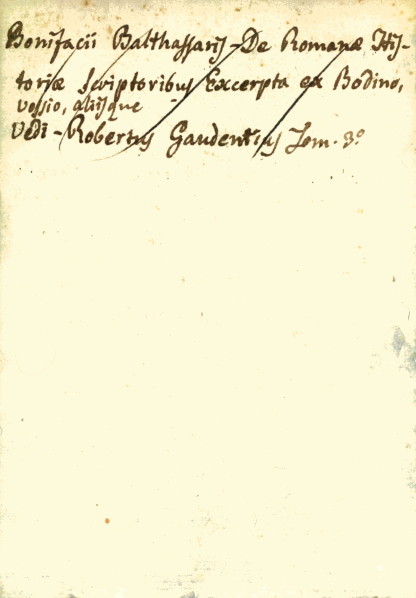 Bonifacii Balthassaris - De Romanæ His-
toriæ scriptoribus Excerpta ex Bodino,
Vossio, aliisque
Vedi - Robertus Gaudentius Tom. 3.º